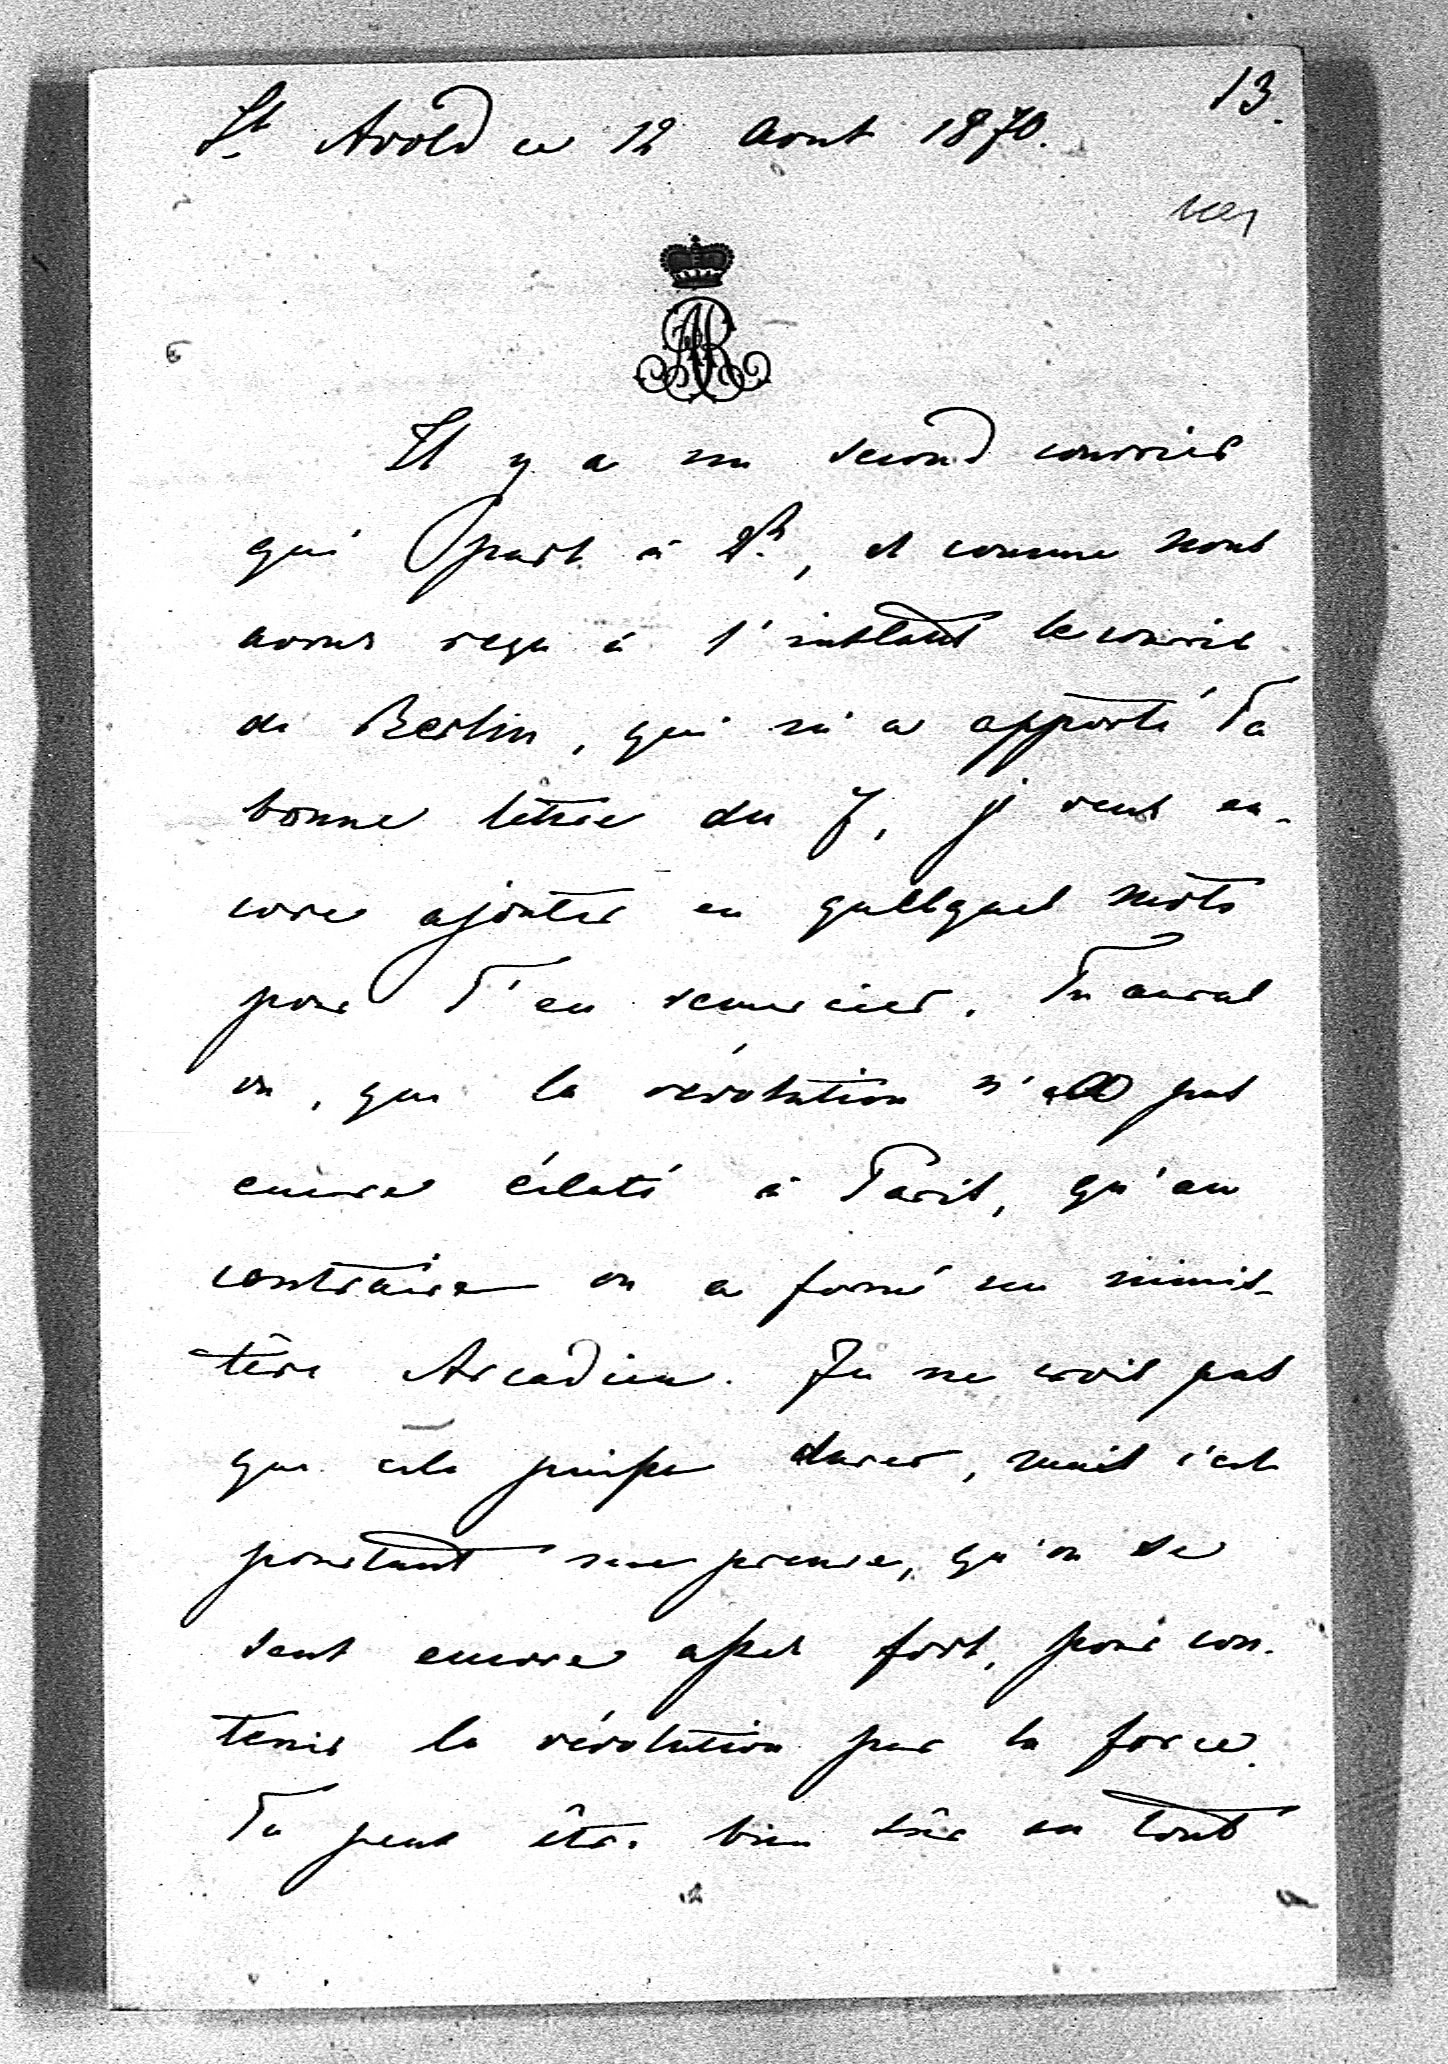 13.
St Avold ce 12 Aout 1870.
Il y a un second courrier
qui part à 2h, et comme nous
avons reçu à l'instant le courrier
de Berlin, qui m'a apporté Ta
bonne lettre du 7, je veux en-
core ajouter en quelques mots
pour T'en remercier. Tu auras
vu, que la révolution n'a pas
encore éclaté à Paris, qu'au
contraire on a formé un minis-
tère Arcadien. Je ne crois pas
que cela puisse durer, mais c'est
pourtant une preuve, qu'on se
sent encore assez fort, pour con-
tenir la révolution par la force.
Tu peux être bien sûr en tout